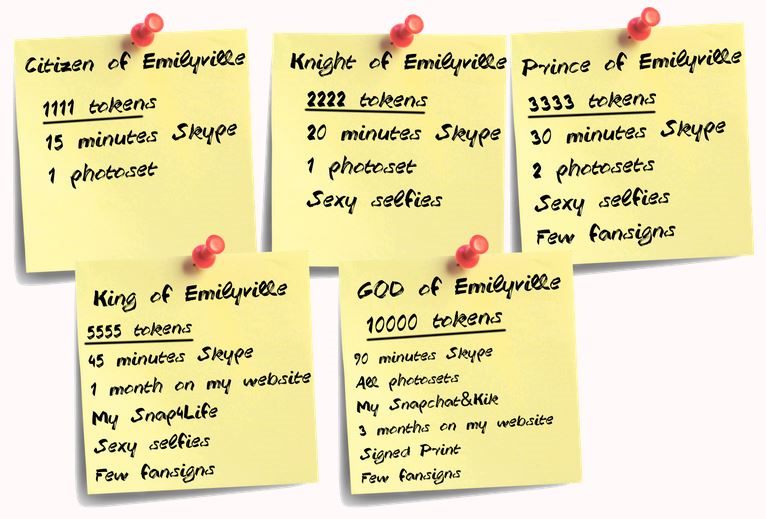 Citizen of Emilyville
1111 tokens
15 minutes Skype
1 photoset
Knight of Emilyville
2222 tokens
20 minutes Skype
1 photoset
Sexy selfies
Prince of Emilyville
3333 tokens
30 minutes Skype
2 photosets
Sexy selfies
Few fansigns
King of Emilyville
5555 tokens
45 minutes Skype
1 month on my website
My Snap4Life
Sexy selfies
Few fansigns
GOD of Emilyville
10000 tokens
90 minutes Skype
All photosets
My Snapchat&Kik
3 months on my website
Signed Print
Few fansigns